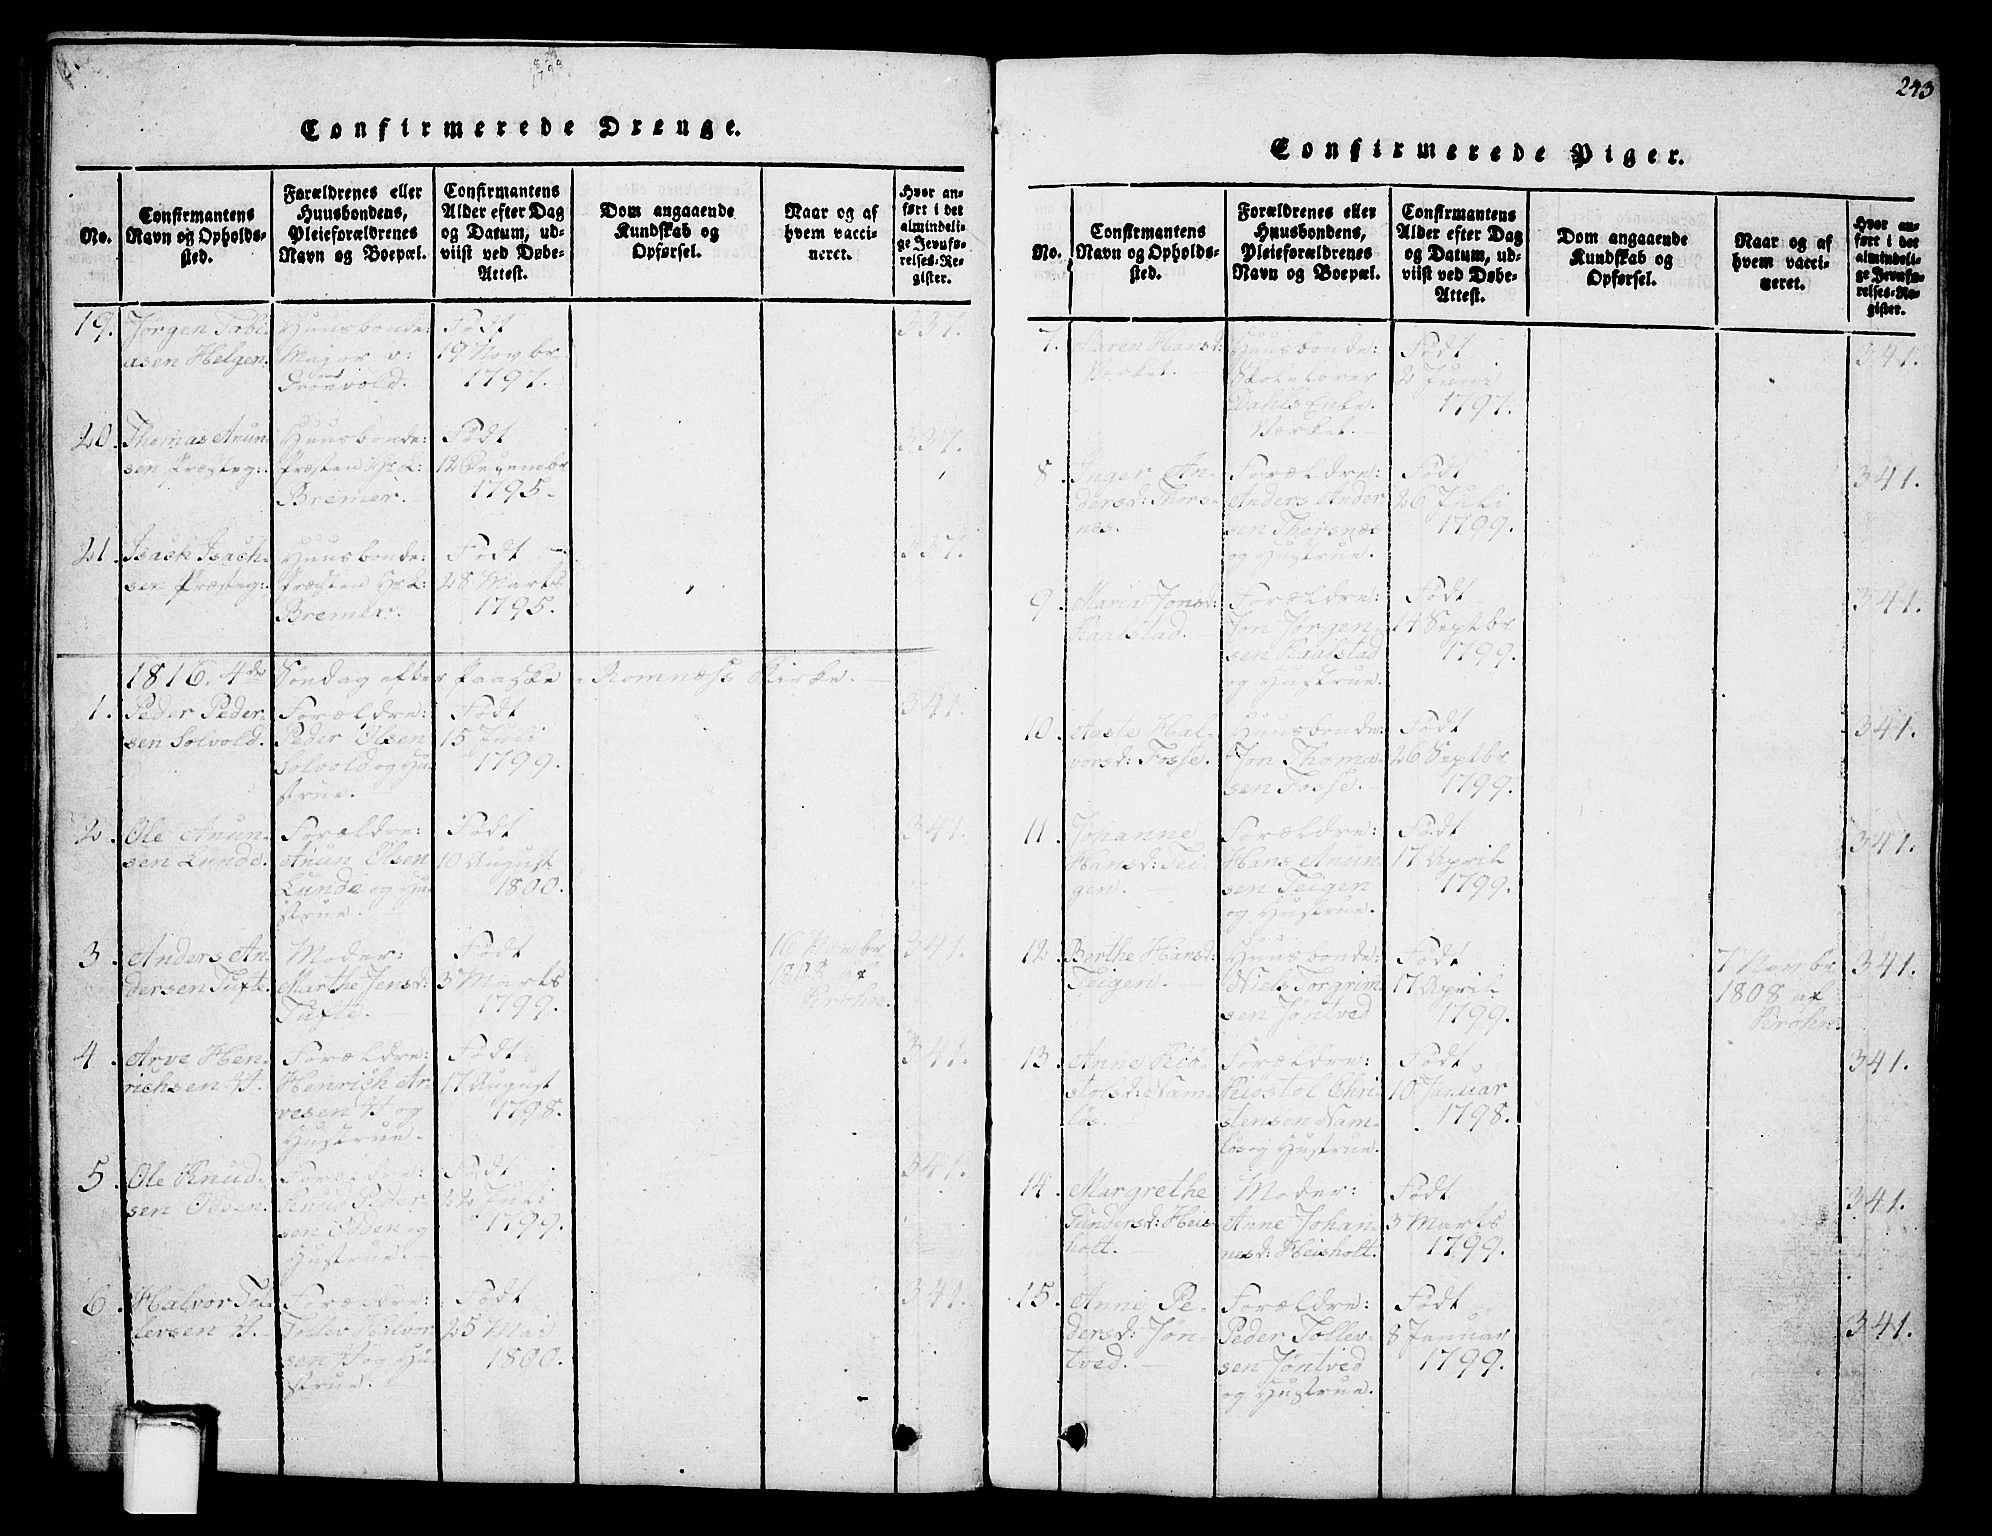 243
Confirmerede Drenge.
No.
Confirmantens
Navn og Opholds-
sted.
Forældrenes eller
Huusbondens,
Pleieforældrenes
Navn og Boepæl.
Confirmantens
Alder efter Dag
og Datum, ud-
viist ved Døbe-
Attest.
Dom angaaende
Kundskab og
Opførsel.
Naar og af
hvem vacci-
neret.
Hvor an-
ført i det
almindeli-
ge Jevnfø-
relses-Re-
gister.
19.
Jørgen Tobi-
asen Helgen.
Huusbonde:
Major v:
Grönvold.
Født
19 Novbr
1797.
337.
20.
Thomas Anun-
sen Præsteg:
Huusbonde:
Præsten Hr L:
Bremer.
Født
12 Decembr
1795.
337.
21.
Isack Isach-
sen Præsteg:
Huusbonde:
Præsten Hr L:
Bremer.
Født
28 Marts
1795.
337.
1816. 4de Søndag efter Paaske Romnæss Kirke.
1.
Peder Peder-
sen Solvold.
Forældre:
Peder Olsen
Solvold og Hu-
strue.
Født
15 Juli
1799.
341.
2.
Ole Anun-
sen Lunde.
Forældre:
Anun Olsen
Lunde og Hu-
strue.
Født
10 August
1800.
341.
3.
Anders An-
dersen Tufte.
Moder:
Marthe Jensd:
Tufte.
Født
3 Marts
1799.
16 Novbr
1808 af
Krohn.
341.
4.
Arve Hen-
richsen H.
Forældre:
Henrich Ar-
vesen H og
Hustrue.
Født
17 August
1798.
341.
5.
Ole Knud-
sen Odden.
Forældre:
Knud Peder-
sen Odden og
Hustrue.
Født
22 Juli
1799.
341.
6.
Halvor Tol-
levsen H.
Forældre:
Tollev Halvor-
sen H og Hu-
strue.
Født
25 Mai
1800.
341.
Confirmerede Piger.
No.
Confirmantens
Navn og Opholds-
sted.
Forældrenes eller
Huusbondens,
Pleieforældrenes
Navn og Boepæl.
Confirmantens
Alder efter Dag
og Datum, ud-
viist ved Døbe-
Attest.
Dom angaaende
Kundskab og
Opførsel.
Naar og af
hvem vacci-
neret.
Hvor an-
ført i det
almindeli-
ge Jevnfø-
relses-Re-
gister.
7.
Maren Hansd:
Værket.
Huusbonde:
Skolelærer
Dahls Enke.
Værket.
Født
2 Juni
1797.
341.
8.
Inger An-
dersd: Thors-
næs.
Forældre:
Anders Ander
sen Thorsnæs
og Hustrue.
Født
26 Juli
1799.
341.
9.
Maria Jonsd:
Kaalstad.
Forældre:
Jon Jørgen-
sen Kaalstad
og Hustrue.
Født
14 Septbr
1799.
341.
10.
Aaste Hal-
vorsd: Fosse.
Huusbonde:
Jon Thoma-
sen Fosse.
Født
26 Septbr
1799.
341.
11.
Johanne
Hansd: Tei-
gen.
Forældre:
Hans Anun-
sen Teigen
og Hustrue.
Født
17 April
1799.
341.
12.
Berthe Hansd:
Teigen.
Huusbonde:
Niels Torgrim
sen Jøntved
Født
17 April
1799.
7 Novbr
1808 af
Krohn.
341.
13.
Anne Kiø-
stolsd: Nam-
løs.
Forældre:
Kiøstol Chri-
stensen Nam-
løs og Hustrue.
Født
10 Januar
1798.
341.
14.
Margrethe
Gundersd: Heis-
holt.
Moder:
Anne Johan-
nesd: Heisholt.
Født
3 Marts
1799.
341.
15.
Anne Pe-
dersd: Jøn-
tved.
Forældre:
Peder Tollev-
sen Jøntved
og Hustrue.
Født
8 Januar
1799.
341.